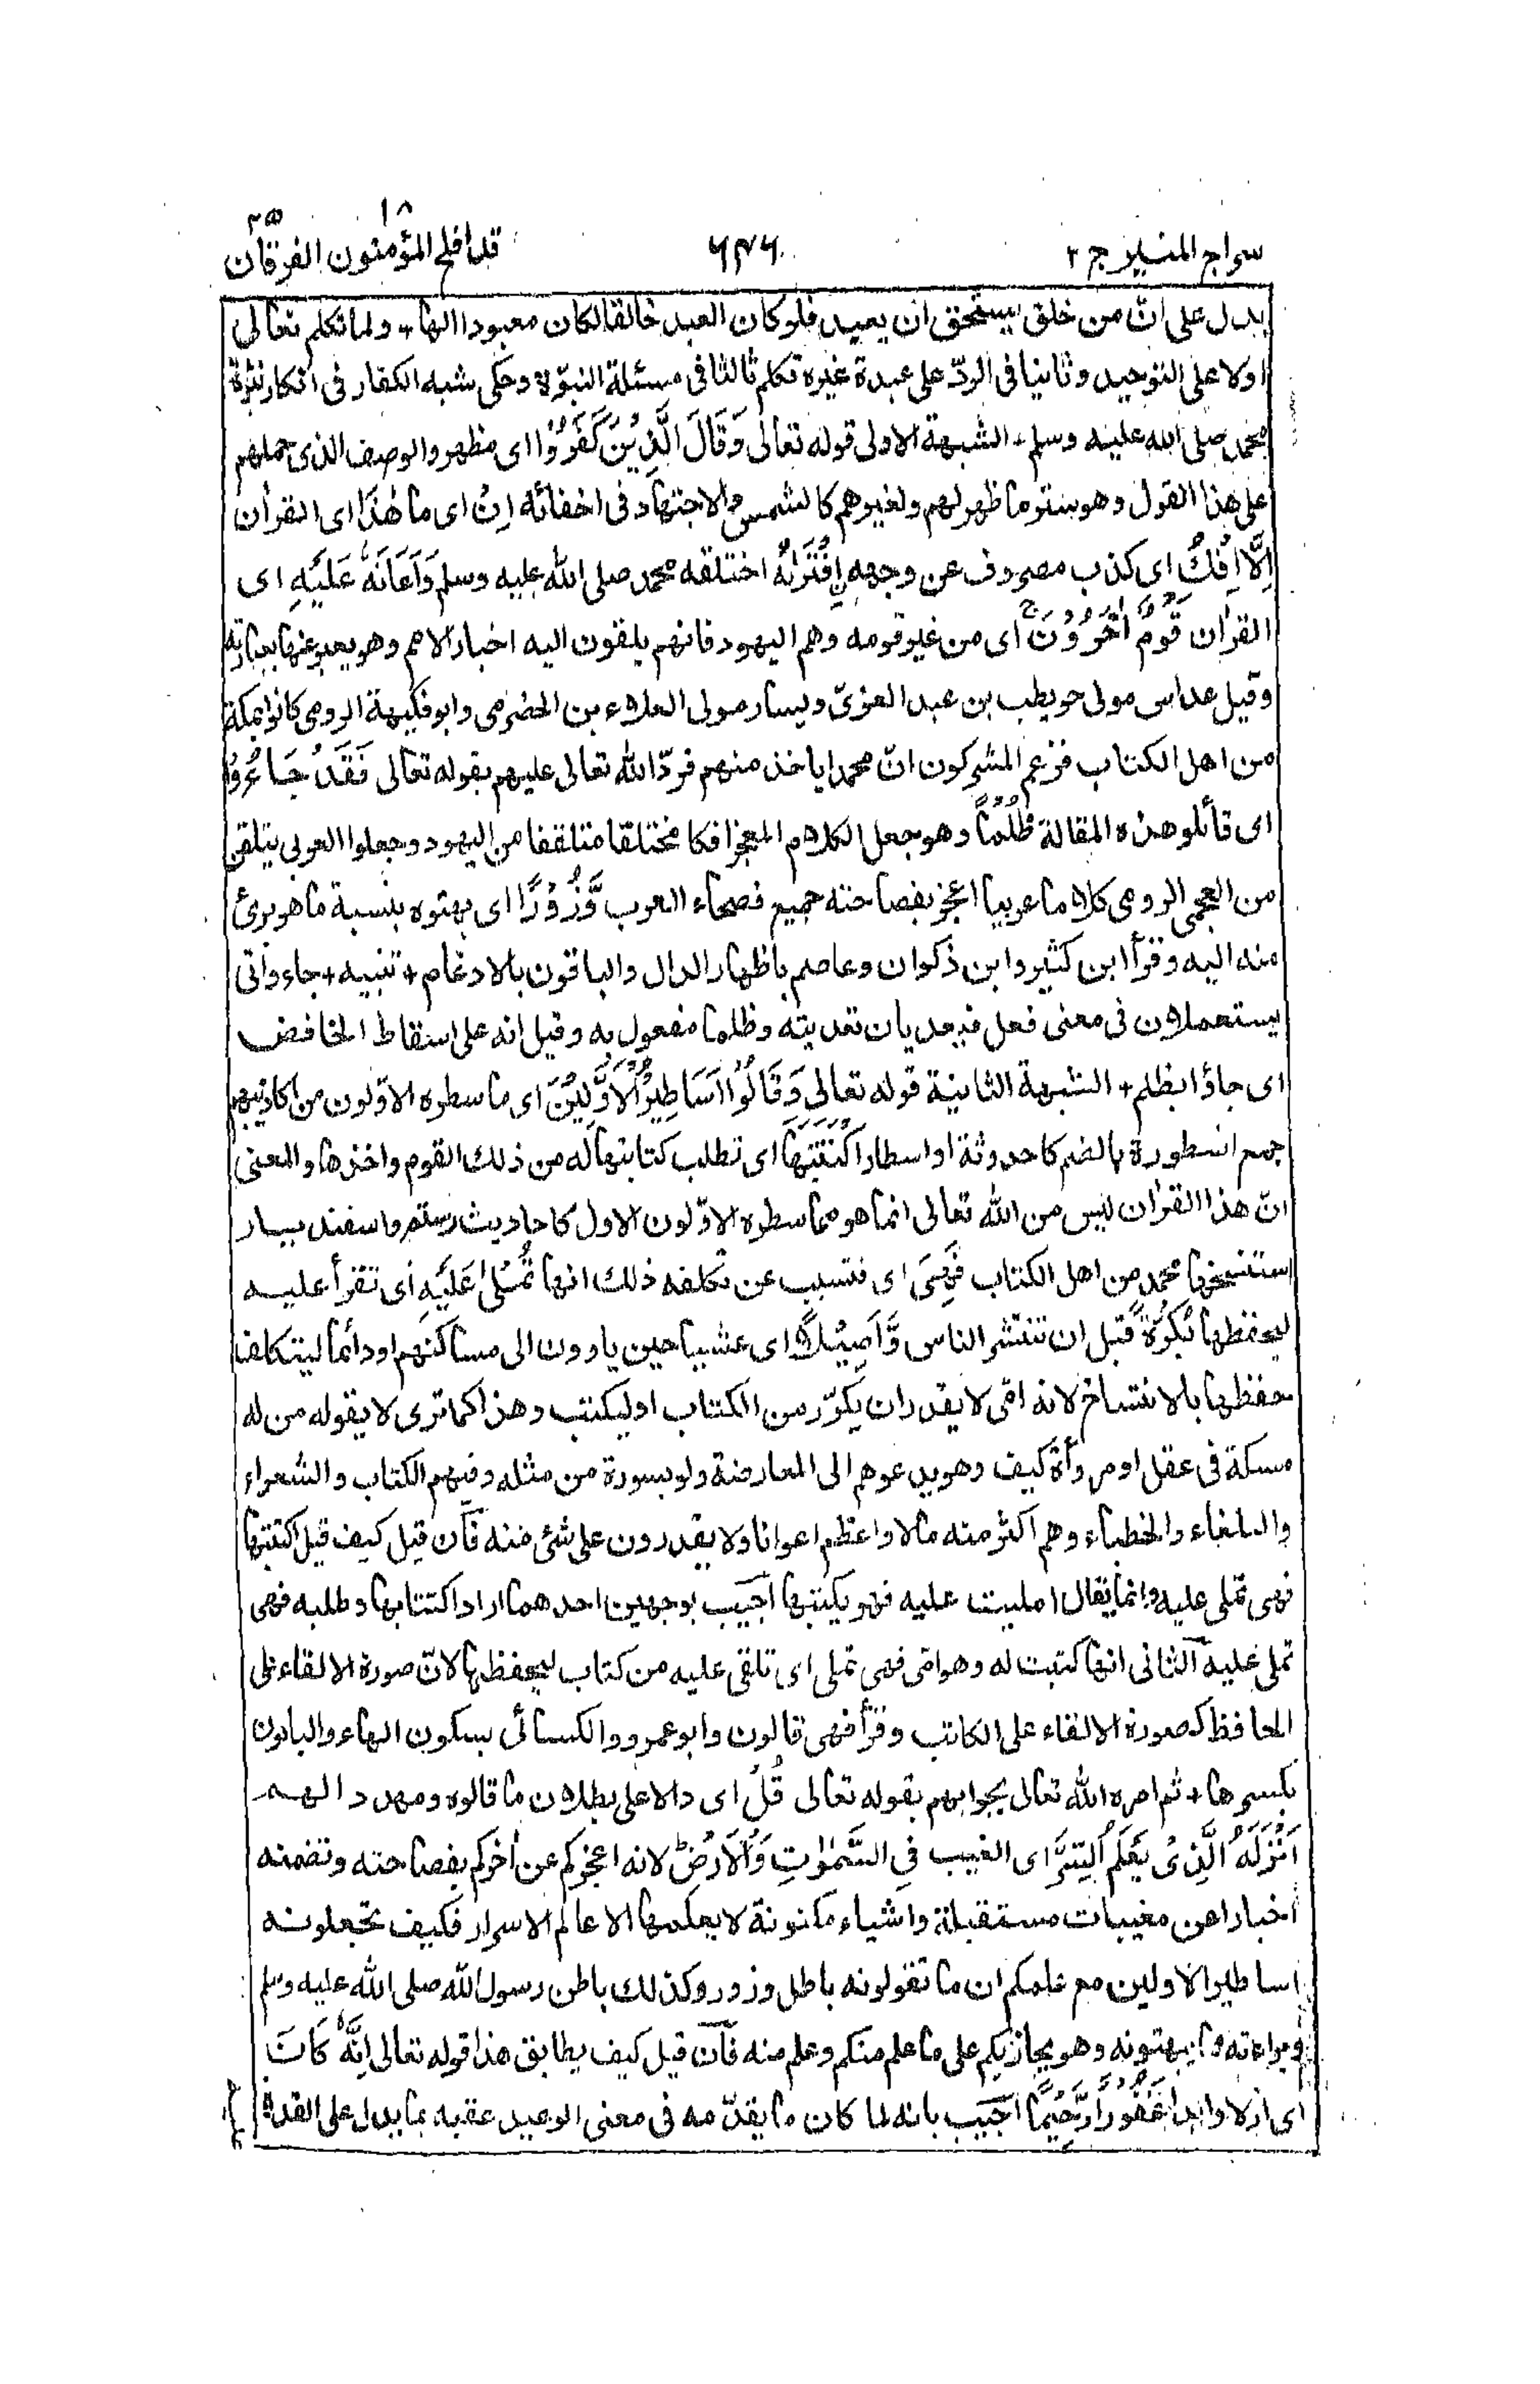 سراج المنير ج ٢
٦٣٦
قد افلح المؤمنون ١٨ الفرقان ٢٥
يدل على انّ من خلق يستحق ان يعبد فلو كان العبد خالقا لكان معبودا الها + ولما تكلم تعالى
اولا على التوحيد وثانيا فى الردّ على عبدة غيره تكلم ثالثا فى مسئلة النبوّة وحكى شبه الكفار فى انكار نبوّة
محمد صلى الله عليه وسلم + الشبهة الاولى قوله تعالى وَقَالَ الَّذِيْنَ كَفَرُوْا اى مظهروا لوصف الذى حملهم
على هذا القول وهو ستر ما ظهر لهم ولغيرهم كالشمس والاجتهاد فى اخفائه اِنْ اى ما هٰذَا اى القراٰن
اِلَّا اِفْكٌ اى كذب مصروف عن وجهه اِفْتَرٰىهُ اختلقه محمد صلى الله عليه وسلم وَاَعَانَهٗ عَلَيْهِ اى
القراٰن قَوْمٌ اٰخَرُوْنَ ج اى من غير قومه وهم اليهود فانهم يلقون اليه اخبار الامم وهو يعبر عنها بعبارته
وقيل عداس مولى حويطب بن عبد العزىّ ويسار مولى العلاء بن الحضرمى وابو فكيهة الرومى كانوا بمكة
من اهل الكتاب فزعم المشركون انّ محمدا ياخذ منهم فردّ الله تعالى عليهم بقوله تعالى فَقَدْ جَاءُوْ
اى قائلو هذه المقالة ظُلْمًا وهو جعل الكلام المعجز افكا مختلقا متلقفا من اليهود وجعلوا العربى يتلقن
من العجمى الرومى كلاما عربيا اعجز بفصاحته جميع فصحاء العرب وَّزُوْرًا اى بهتوه بنسبة ما هو برئ
منه اليه وقرأ ابن كثير وابن ذكوان وعاصم باظهار الدال والباقون بالادغام + تنبيه + جاء واتى
يستعملان فى معنى فعل فيعديان تعديته وظلما مفعول به وقيل انه على اسقاط الخافض
اى جاؤا بظلم + الشبهة الثانية قوله تعالى وَقَالُوْا اَسَاطِيْرُ الْاَوَّلِيْنَ اى ما سطره الاوّلون من اكاذيبهم
جمع اسطورة بالضم كاحدوثة او اسطار اكْتَتَبَهَا اى تطلب كتابتها له من ذلك القوم واخذها والمعنى
انّ هذا القراٰن ليس من الله تعالى انما هو مما سطره الاوّلون الاول كاحاديث رستم واسفنديار
استنسخها محمد من اهل الكتاب فَهِىَ اى فتسبب عن تكلفه ذلك انها تُمْلٰى عَلَيْهِ اى تقرأ عليه
ليحفظها بُكْرَةً قبل ان تنتشر الناس وَّاَصِيْلًا اى عشيا حين ياوون الى مساكنهم او دائما ليتكلف
حفظها بالانتساخ لانه امى لا يقدر ان يكرّر من الكتاب او ليكتب وهذا كما ترى لا يقوله من له
مسكة فى عقل او مروأة كيف وهو يدعوهم الى المعارضة ولو بسورة من مثله وفيهم الكتاب والشعراء
والبلغاء والخطباء وهم اكثر منه مالا واعظم اعوانا ولا يقدرون على شئ منه فان قيل كيف قيل اكتتبها
فهى تملى عليه وانما يقال امليت عليه فهو يكتبها اجيب بوجهين احدهما اراد اكتتابها وطلبه فهى
تملى عليه الثانى انها كتبت له وهو امى فهى تملى اى تلقى عليه من كتاب ليحفظها لانّ صورة الالقاء على
الحافظ كصورة الالقاء على الكاتب وقرأ فهى قالون وابو عمرو والكسائى بسكون الهاء والباقون
بكسرها + ثم امره الله تعالى بجوابهم بقوله تعالى قُلْ اى دالا على بطلان ما قالوه ومهددا لهم
اَنْزَلَهُ الَّذِىْ يَعْلَمُ السِّرَّ اى الغيب فِى السَّمٰوٰتِ وَالْاَرْضِ ط لانه اعجزكم عن اٰخركم بفصاحته وتضمنه
اخبارا عن مغيبات مستقبلة واشياء مكنونة لا يعلمها الا عالم الاسرار فكيف تجعلونه
اساطير الاولين مع علمكم ان ما تقولونه باطل وزور وكذلك باطن رسول الله صلى الله عليه وسلم
وبراءته مما يبهتونه وهو يجازيكم على ما علم منكم وعلم منه فان قيل كيف يطابق هذا قوله تعالى اِنَّهٗ كَانَ
اى ازلا وابدا غَفُوْرًا رَّحِيْمًا اجيب بانه لما كان ما يقدّمه فى معنى الوعيد عقبه بما يدل على القدرة